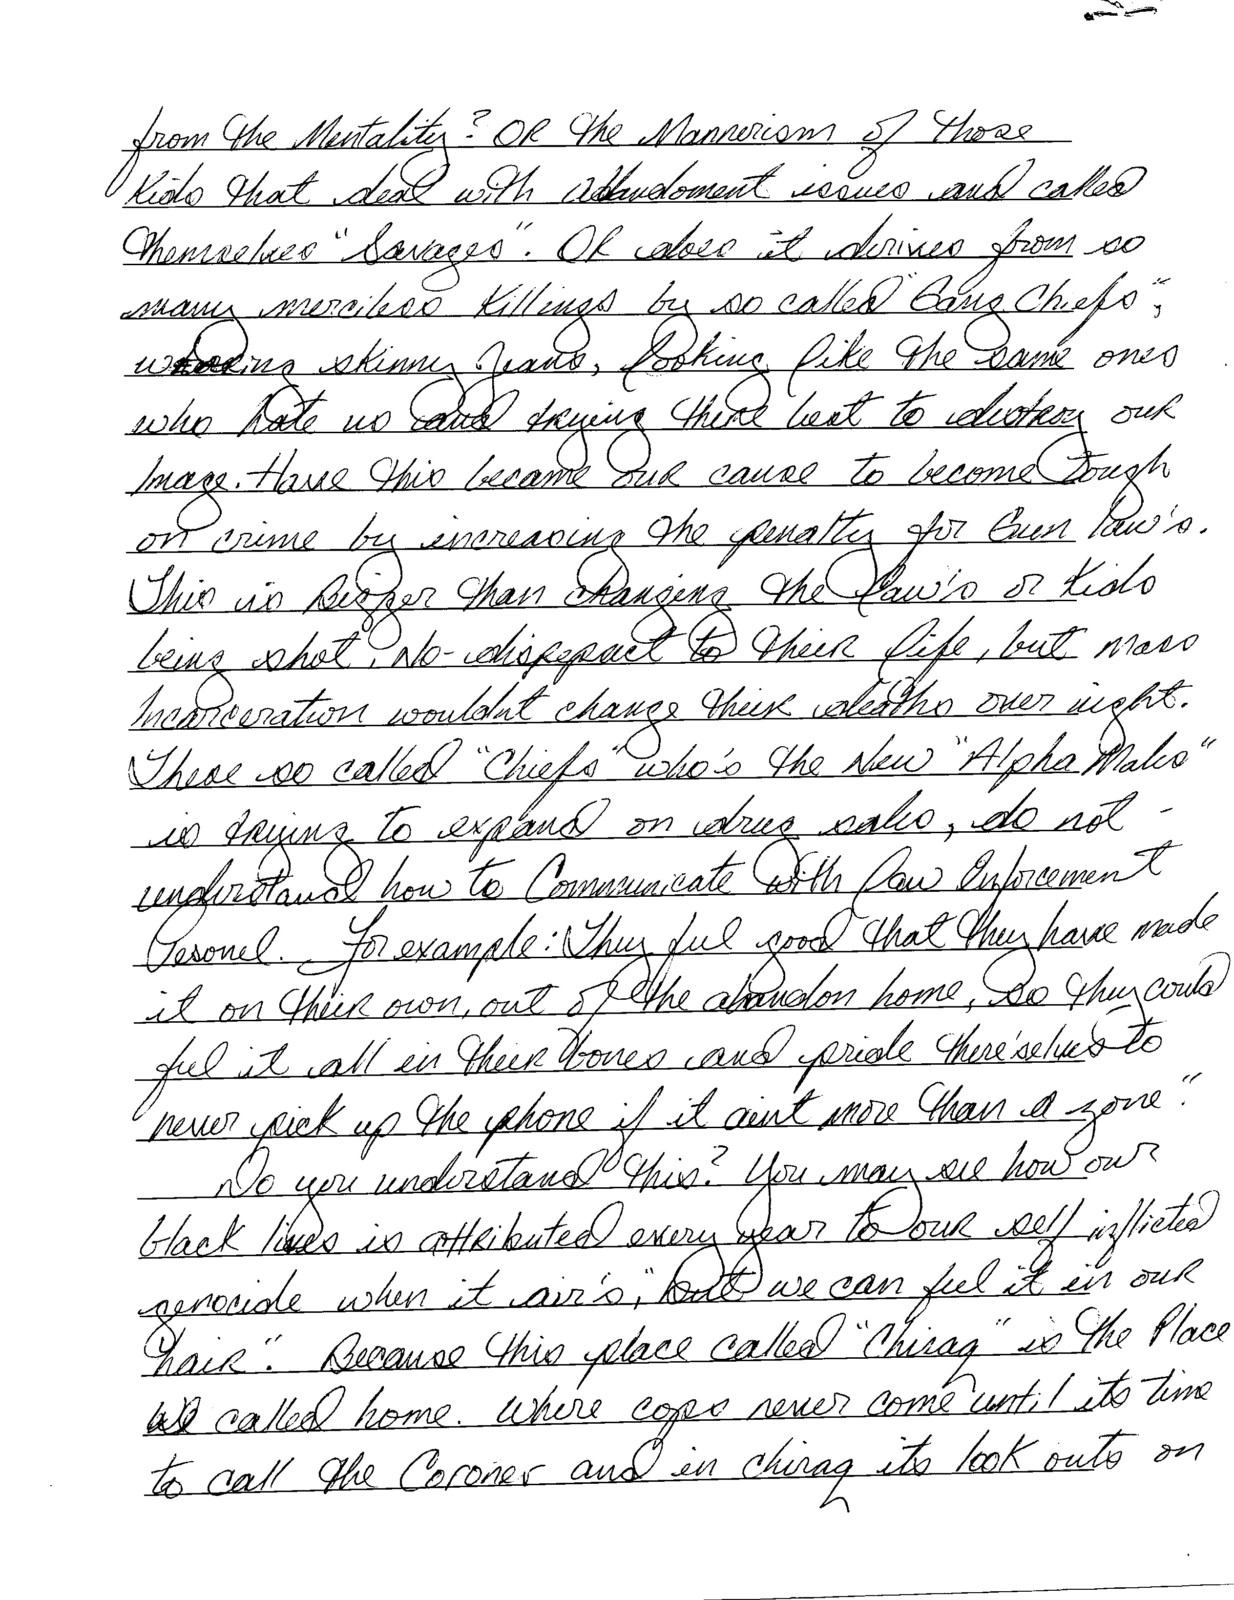 from the Mentality? OR the Mannerism of those
Kids that deal with abandoment issues and called
themselves "Savages". OR does it derives from so
many merciless killings by so called "Gang Chiefs",
wearing skinny jeans, looking like the same ones
who hate us and trying there best to destroy our
Image. Have this became our cause to become tough
on crime by increasing the penalty for Gun law's.
This is Bigger than changing the law's or kids
being shot". No-disrepact to their life, but mass
Incarceration wouldnt change their deaths over night.
These so called "Chiefs" who's the New "Alpha Males"
is trying to expand on drug sales, do not -
understand how to Communicate with Law Enforcement
Pesonel. For example: They feel good that they have made
it on their own, out of the abandon home, so they could
feel it all in their bones and pride there'selves to
never pick up the phone if it aint more than a zone".
Do you understand this? You may see how our
black lives is attributed every year to our self inflicted
genocide when it air's, "but we can feel it in our
hair". Because this place called "Chiraq" is the Place
we called home. Where cops never come until its time
to call the Coroner and in chiraq its look outs on